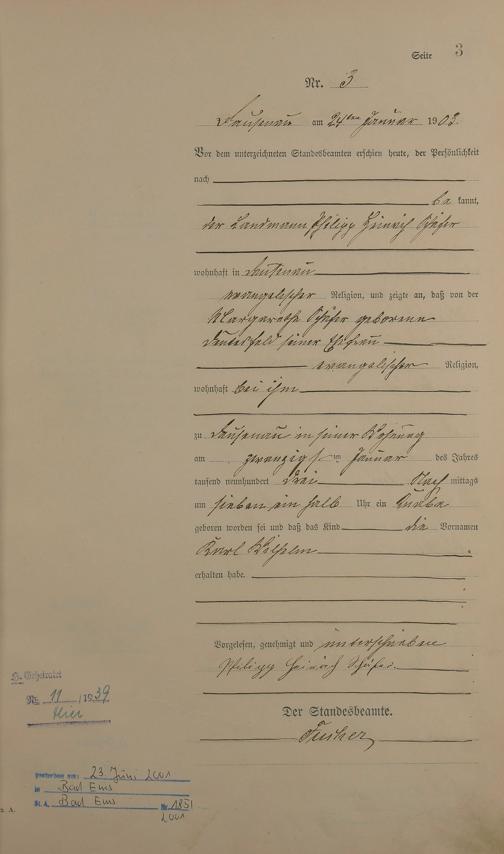 Seite 3
Nr. 3
Dausenau am 24ten Januar 1903.
Vor dem unterzeichneten Standesbeamten erschien heute, der Persönlichkeit
nach
be kannt,
der Landmann Philipp Heinrich Schäfer
wohnhaft in Dausenau
evangelischer Religion, und zeigte an, daß von der
Margarethe Schäfer geborene
seiner Ehefrau
evangelischer Religion,
wohnhaft bei ihm
zu Dausenau in seiner Wohnung
am zwanzigsten Januar des Jahres
tausend neunhundert drei Nach mittags
um sieben ein halb Uhr ein Knabe
geboren worden sei und daß das Kind die Vornamen
Karl Wilhelm
erhalten habe.
Vorgelesen, genehmigt und unterschrieben
Philipp Heinrich Schäfer.
Der Standesbeamte.
Nr. 11 / 1939
hier
gestorben am: 23. Juni 2001
in Bad Ems
St. A. Bad Ems Nr. 185/
2001